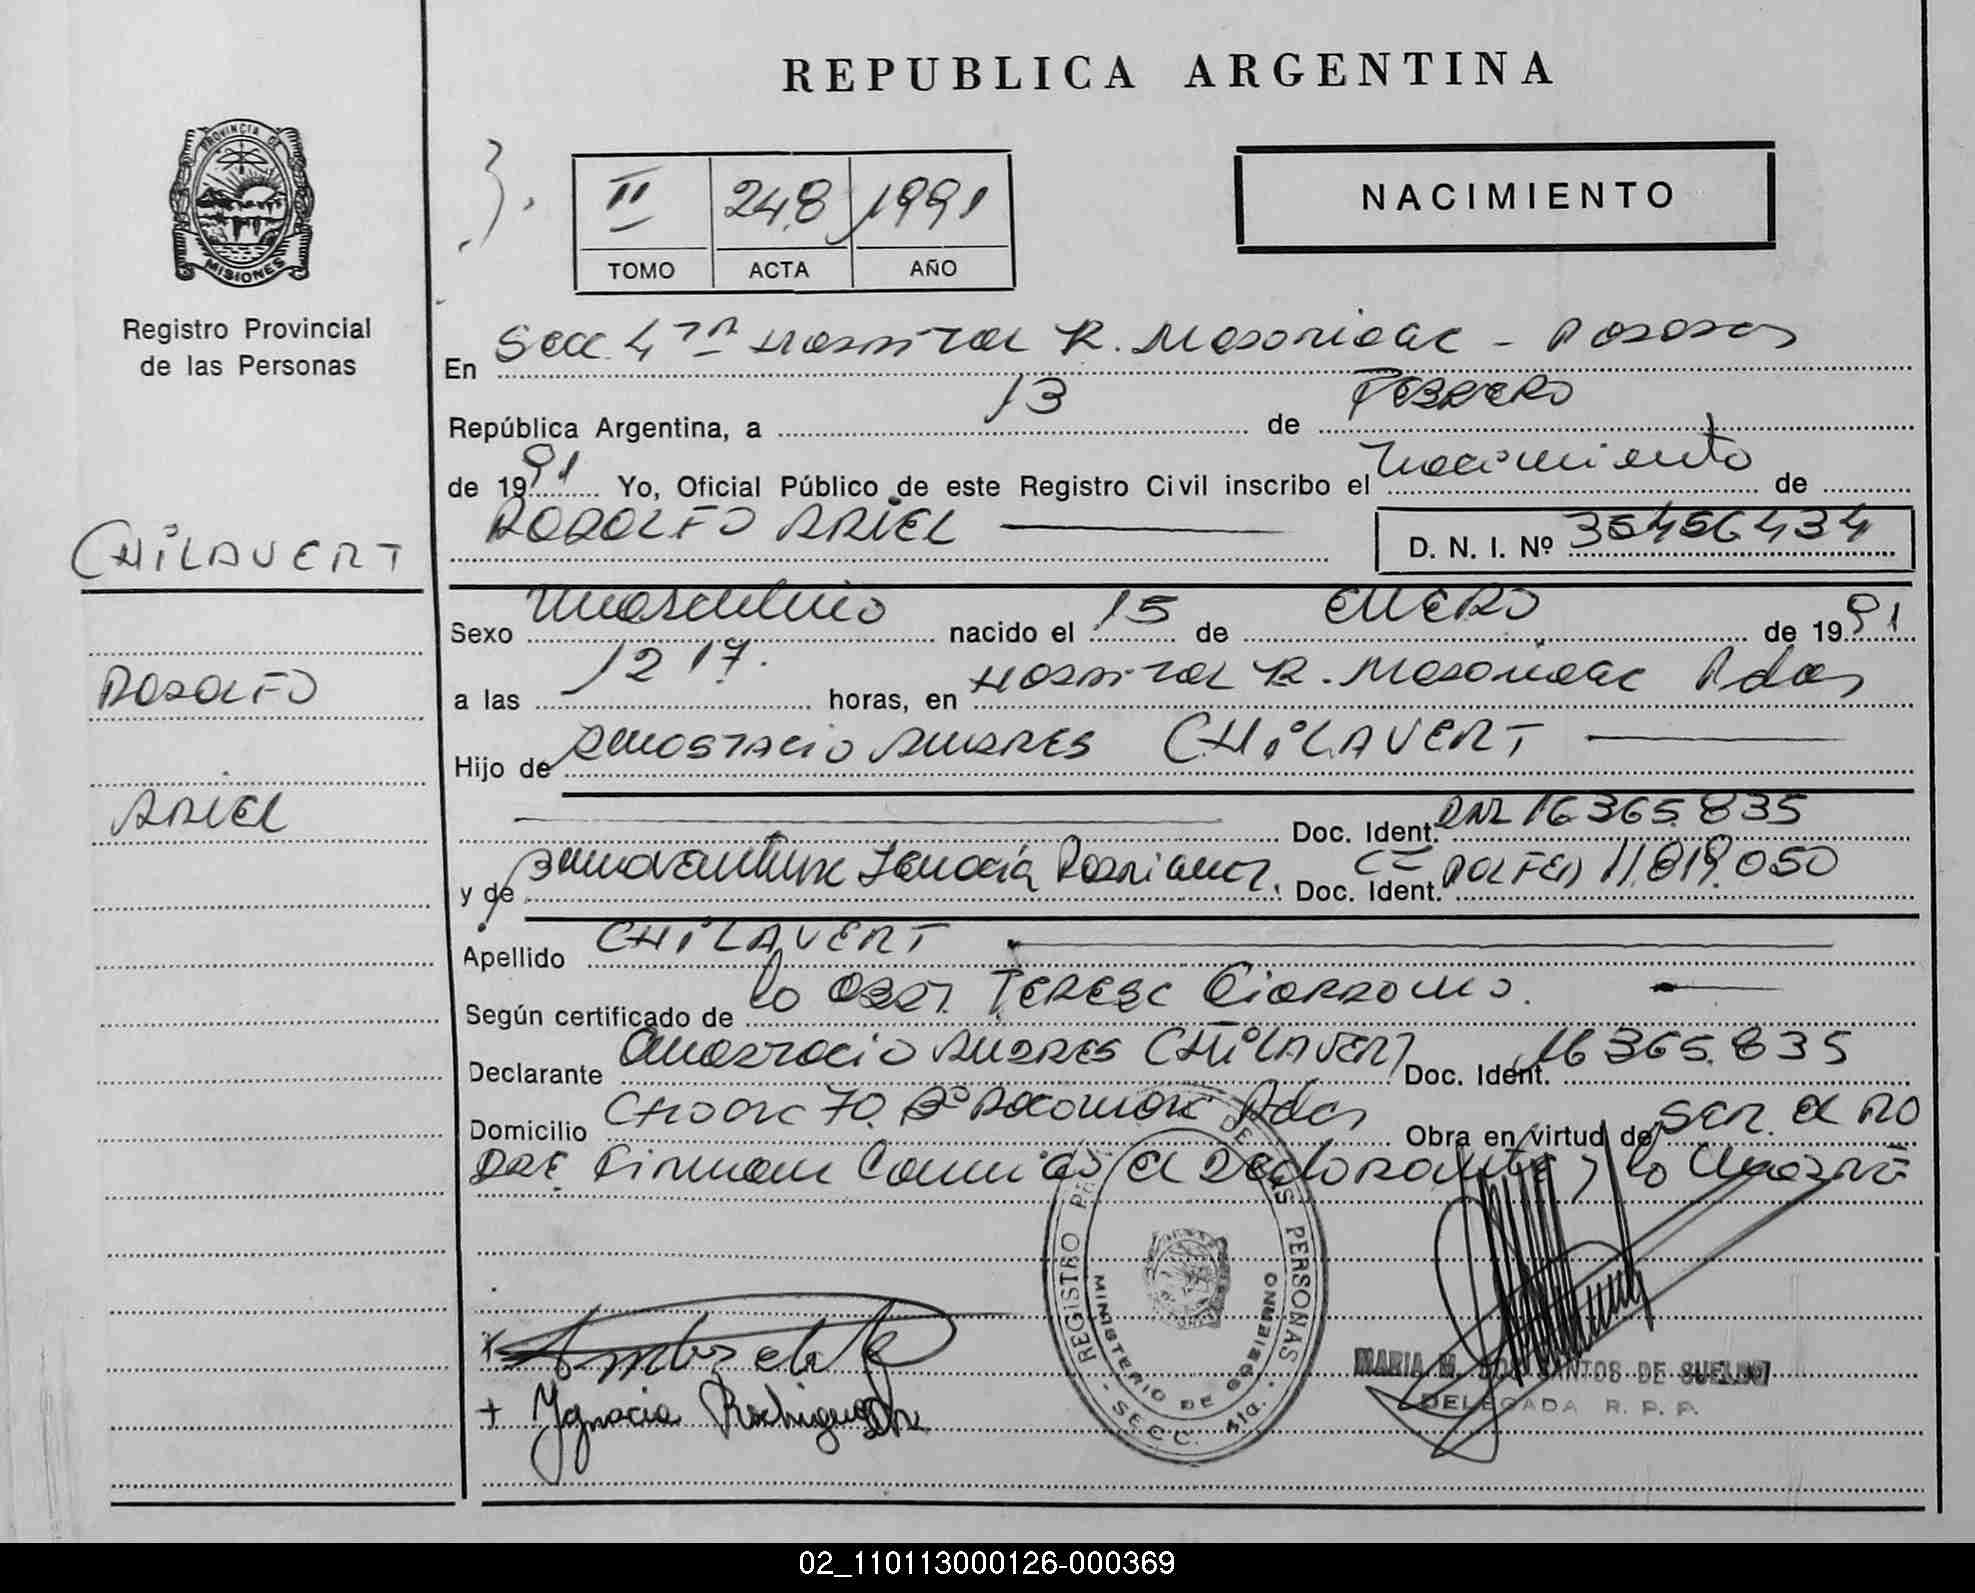 REPUBLICA ARGENTINA
PROVINCIA DE
MISIONES
Registro Provincial
de las Personas
II 248 1991
TOMO ACTA AÑO
NACIMIENTO
En Secc. 4ta Hospital R. Madariaga - Posadas
República Argentina, a 13 de Febrero
de 1991 Yo, Oficial Público de este Registro Civil inscribo el Nacimiento de
RODOLFO ARIEL D. N. I. Nº 35456434
CHILAVERT
RODOLFO
ARIEL
Sexo masculino nacido el 15 de ENERO de 1991
a las 12 17. horas, en Hospital R. Madariaga Pdas
Hijo de ANDRES CHILAVERT
Doc. Ident. DNI 16365.835
y de Ignacia Rodriguez. Doc. Ident. 11.819.050
Apellido CHILAVERT
Según certificado de la Obst. TERESA
Declarante ANDRES CHILAVERT Doc. Ident. 16365.835
Domicilio 70. Bº Pdas Obra en virtud de ser el PA
DRE. Firman Conmigo el Declarante y la Madre
REGISTRO DE LAS PERSONAS
MINISTERIO DE GOBIERNO
- SECC. 4ta. -
+ Ygnacia Rodriguez
MARIA M. DOS SANTOS DE
DELEGADA R. P. P.
02_110113000126-000369